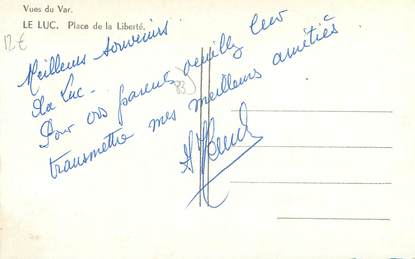 Vues du Var.
LE LUC. Place de la Liberté.
12 €
Meilleurs souvenirs
du Luc.
(83)
Pour vos parents veuillez leur
transmettre mes meilleurs amitiés